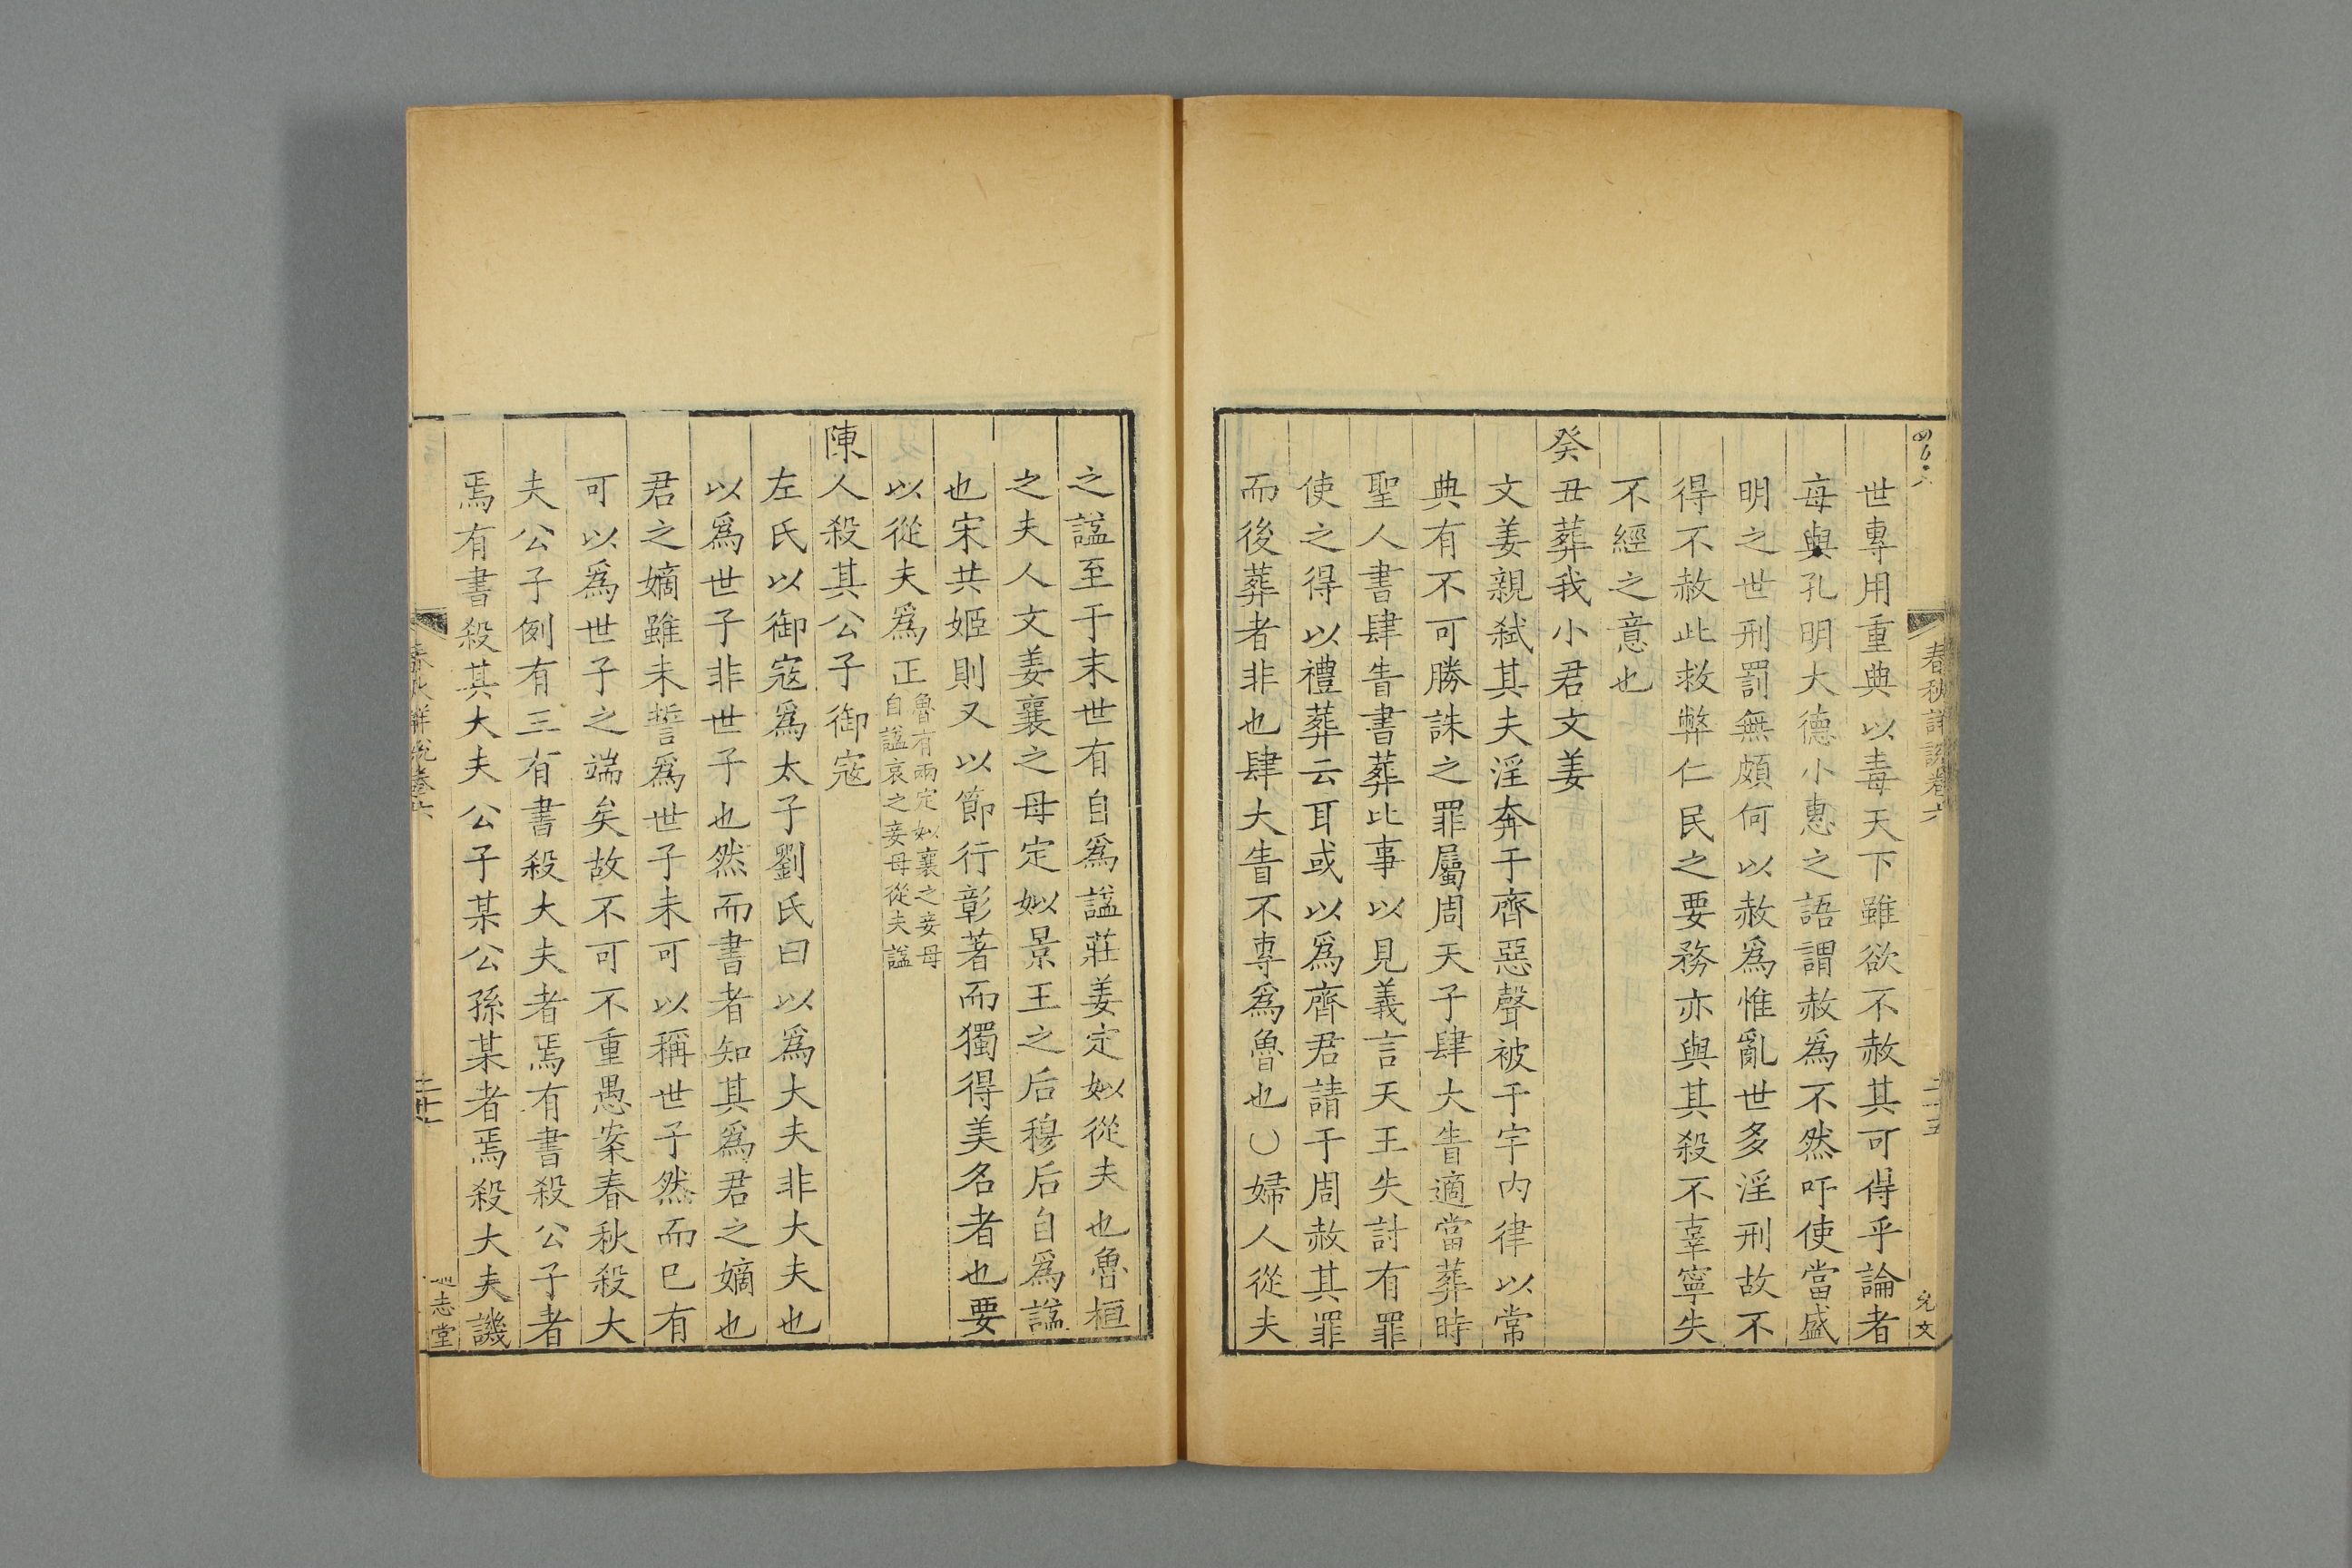 春秋詳說卷六
世專用重典以毒天下雖欲不赦其可得乎論者
每與孔明大德小惠之語謂赦爲不然吁使當盛
明之世刑罰無頗何以赦爲惟亂世多淫刑故不
得不赦此救弊仁民之要務亦與其殺不辜寧失
不經之意也
癸丑葬我小君文姜
文姜親弑其夫淫奔于齊惡聲被于宇内律以常
典有不可勝誅之罪屬周天子肆大眚適當葬時
聖人書肆眚書葬比事以見義言天王失討有罪
使之得以禮葬云耳或以爲齊君請于周赦其罪
而後葬者非也肆大眚不專爲魯也〇婦人從夫
之諡至于末世有自爲諡莊姜定姒從夫也魯桓
之夫人文姜襄之母定姒景王之后穆后自爲諡
也宋共姬則又以節行彰著而獨得美名者也要
以從夫爲正魯有兩定姒襄之妾母
自諡哀之妾母從夫諡
陳人殺其公子御寇
左氏以御寇爲太子劉氏曰以爲大夫非大夫也
以爲世子非世子也然而書者知其爲君之嫡也
君之嫡雖未誓爲世子未可以稱世子然而已有
可以爲世子之端矣故不可不重愚案春秋殺大
夫公子例有三有書殺大夫者焉有書殺公子者
焉有書殺其大夫公子某公孫某者焉殺大夫譏
春秋詳說卷六
志堂